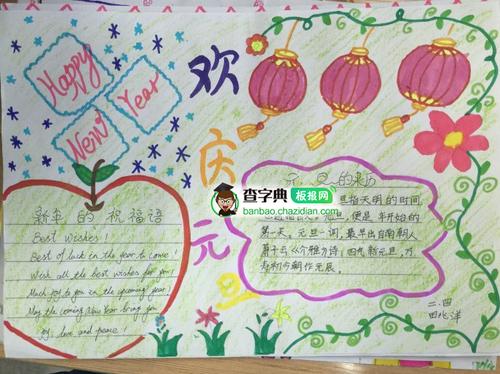 Happy
New
Year
欢
庆
元
旦
新年的祝福语
Best wishes!
Best of luck in the year to come!
Wish all the best wishes for you!
Much joy to you in the upcoming year!
May the coming new year bring you
joy, love and peace!
元旦的来历
旦指天明的时间
元旦,便是年开始的
第一天。元旦一词,最早出自南朝人
萧子云《介雅》诗:四气新元旦,万
寿初今朝作元辰。
二.四
查字典 板报网
banbao.chazidian.com